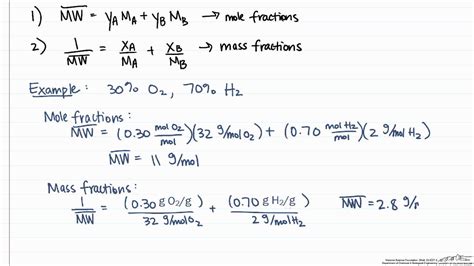 1) M̅W̅ = y_A M_A + y_B M_B → mole fractions
2) 1/M̅W̅ = x_A/M_A + x_B/M_B → mass fractions
Example: 30% O₂, 70% H₂
Mole fractions:
M̅W̅ = (0.30 mol O₂/mol)(32 g/mol O₂) + (0.70 mol H₂/mol)(2 g/mol H₂)
M̅W̅ = 11 g/mol
Mass fractions:
1/M̅W̅ = (0.30 g O₂/g)/(32 g/mol O₂) + (0.70 g H₂/g)/(2 g/mol H₂) M̅W̅ = 2.8 g/